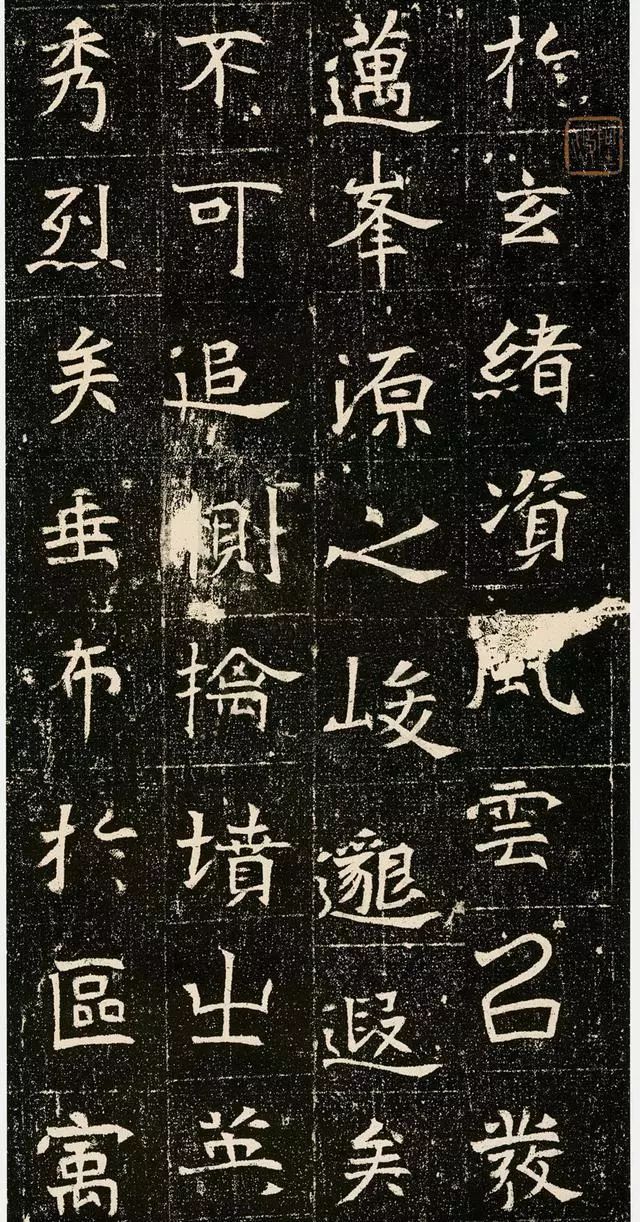 於玄緒資風雲㠯發
邁峯源之峻邈遐矣
不可追擒墳出並
秀烈矣垂布於區寓